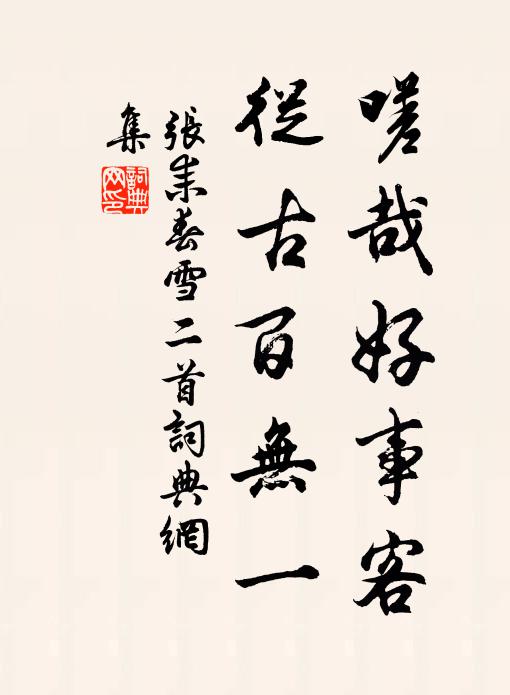 嗟哉好事客
從古百無一
張耒春雪二首詞典網
集
詞典
网印